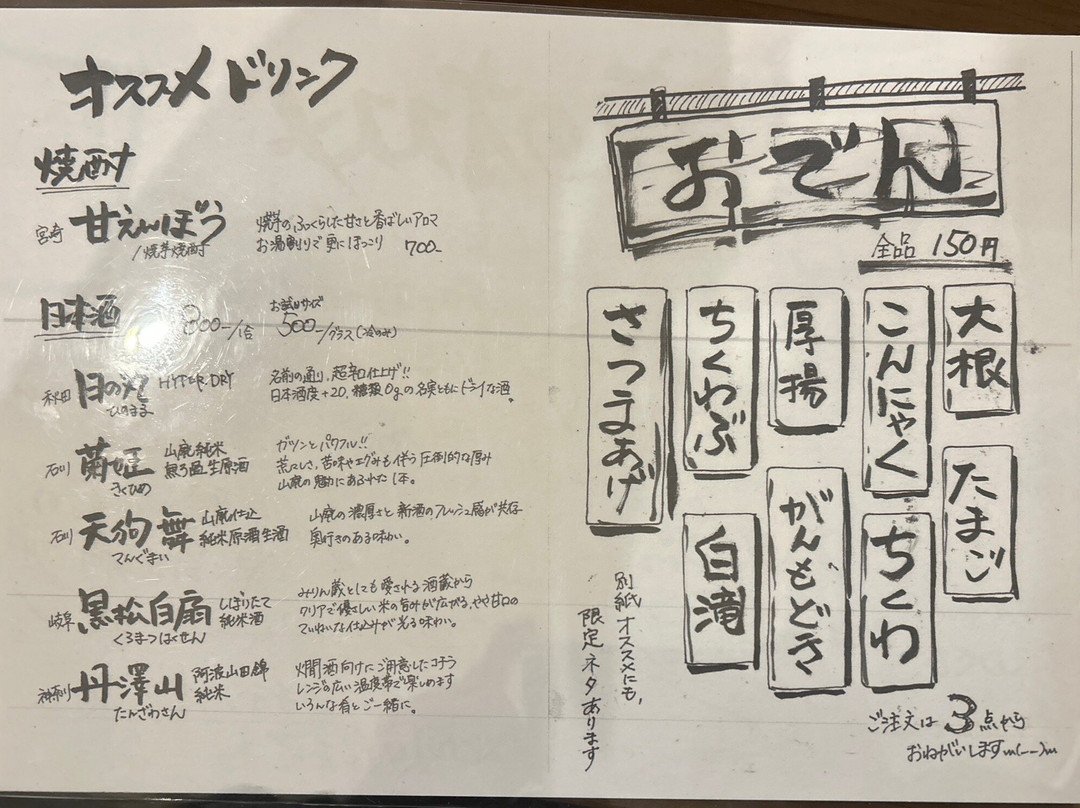 オススメドリンク
焼酎
宮崎 甘えんぼう
/焼芋焼酎
焼芋のふっくらした甘さと香ばしいアロマ
お湯割りで更にほっこり 700-
日本酒 800-/1合
お試しサイズ
500-/グラス(冷のみ)
秋田 日の○ HYPER DRY
ひのまま
名前の通り、超辛口仕上げ!!
日本酒度+20、糖類0g。の名実ともにドライな酒。
石川 菊姫
きくひめ
山廃純米
無ろ過生原酒
ガツンとパワフル!!
荒々しさ、苦味やエグみも伴う圧倒的な厚み
山廃の魅力にあふれた1本。
石川 天狗舞
てんぐまい
山廃仕込
純米原酒生酒
山廃の濃厚さと新酒のフレッシュ感が共存
奥行きのある味わい。
岐阜 黒松白扇
くろまつはくせん
しぼりたて
純米酒
みりん蔵としても愛される酒蔵から
クリアで優しい米の旨みが広がる、やや甘口の
ていねいな仕込みが光る味わい。
神奈川 丹澤山
たんざわさん
阿波山田錦
純米
燗酒向けにご用意したコチラ
レンジの広い温度帯で楽しめます
いろんな肴とご一緒に。
おでん
全品 150円
大根
たまご
こんにゃく
ちくわ
厚揚
がんもどき
ちくわぶ
白滝
さつまあげ
別紙オススメにも、
限定ネタあります
ご注文は3点から
おねがいしますm(_ _)m